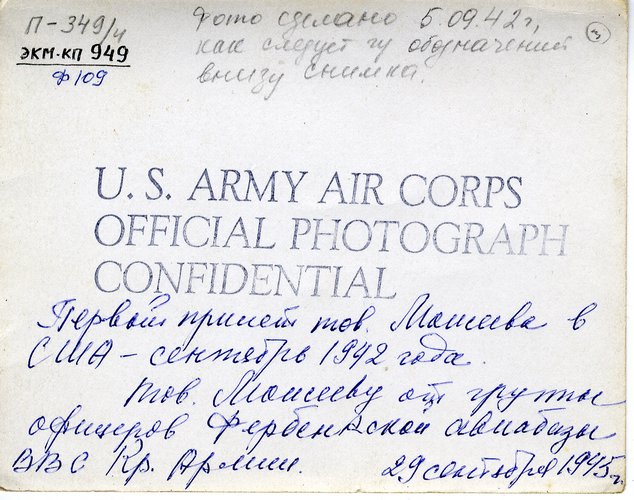 П-349/4
ЭКМ-КП 949
Ф 109
Фото сделано 5.09.42 г,
как следует из обозначений
внизу снимка.
3
U. S. ARMY AIR CORPS
OFFICIAL PHOTOGRAPH
CONFIDENTIAL
Первый прилет тов. Мошева в
США – сентябрь 1942 года.
Тов. Мошеву от группы
офицеров Фербенкской авиабазы
ВВС Кр. Армии. 29 сентября 1945 г.